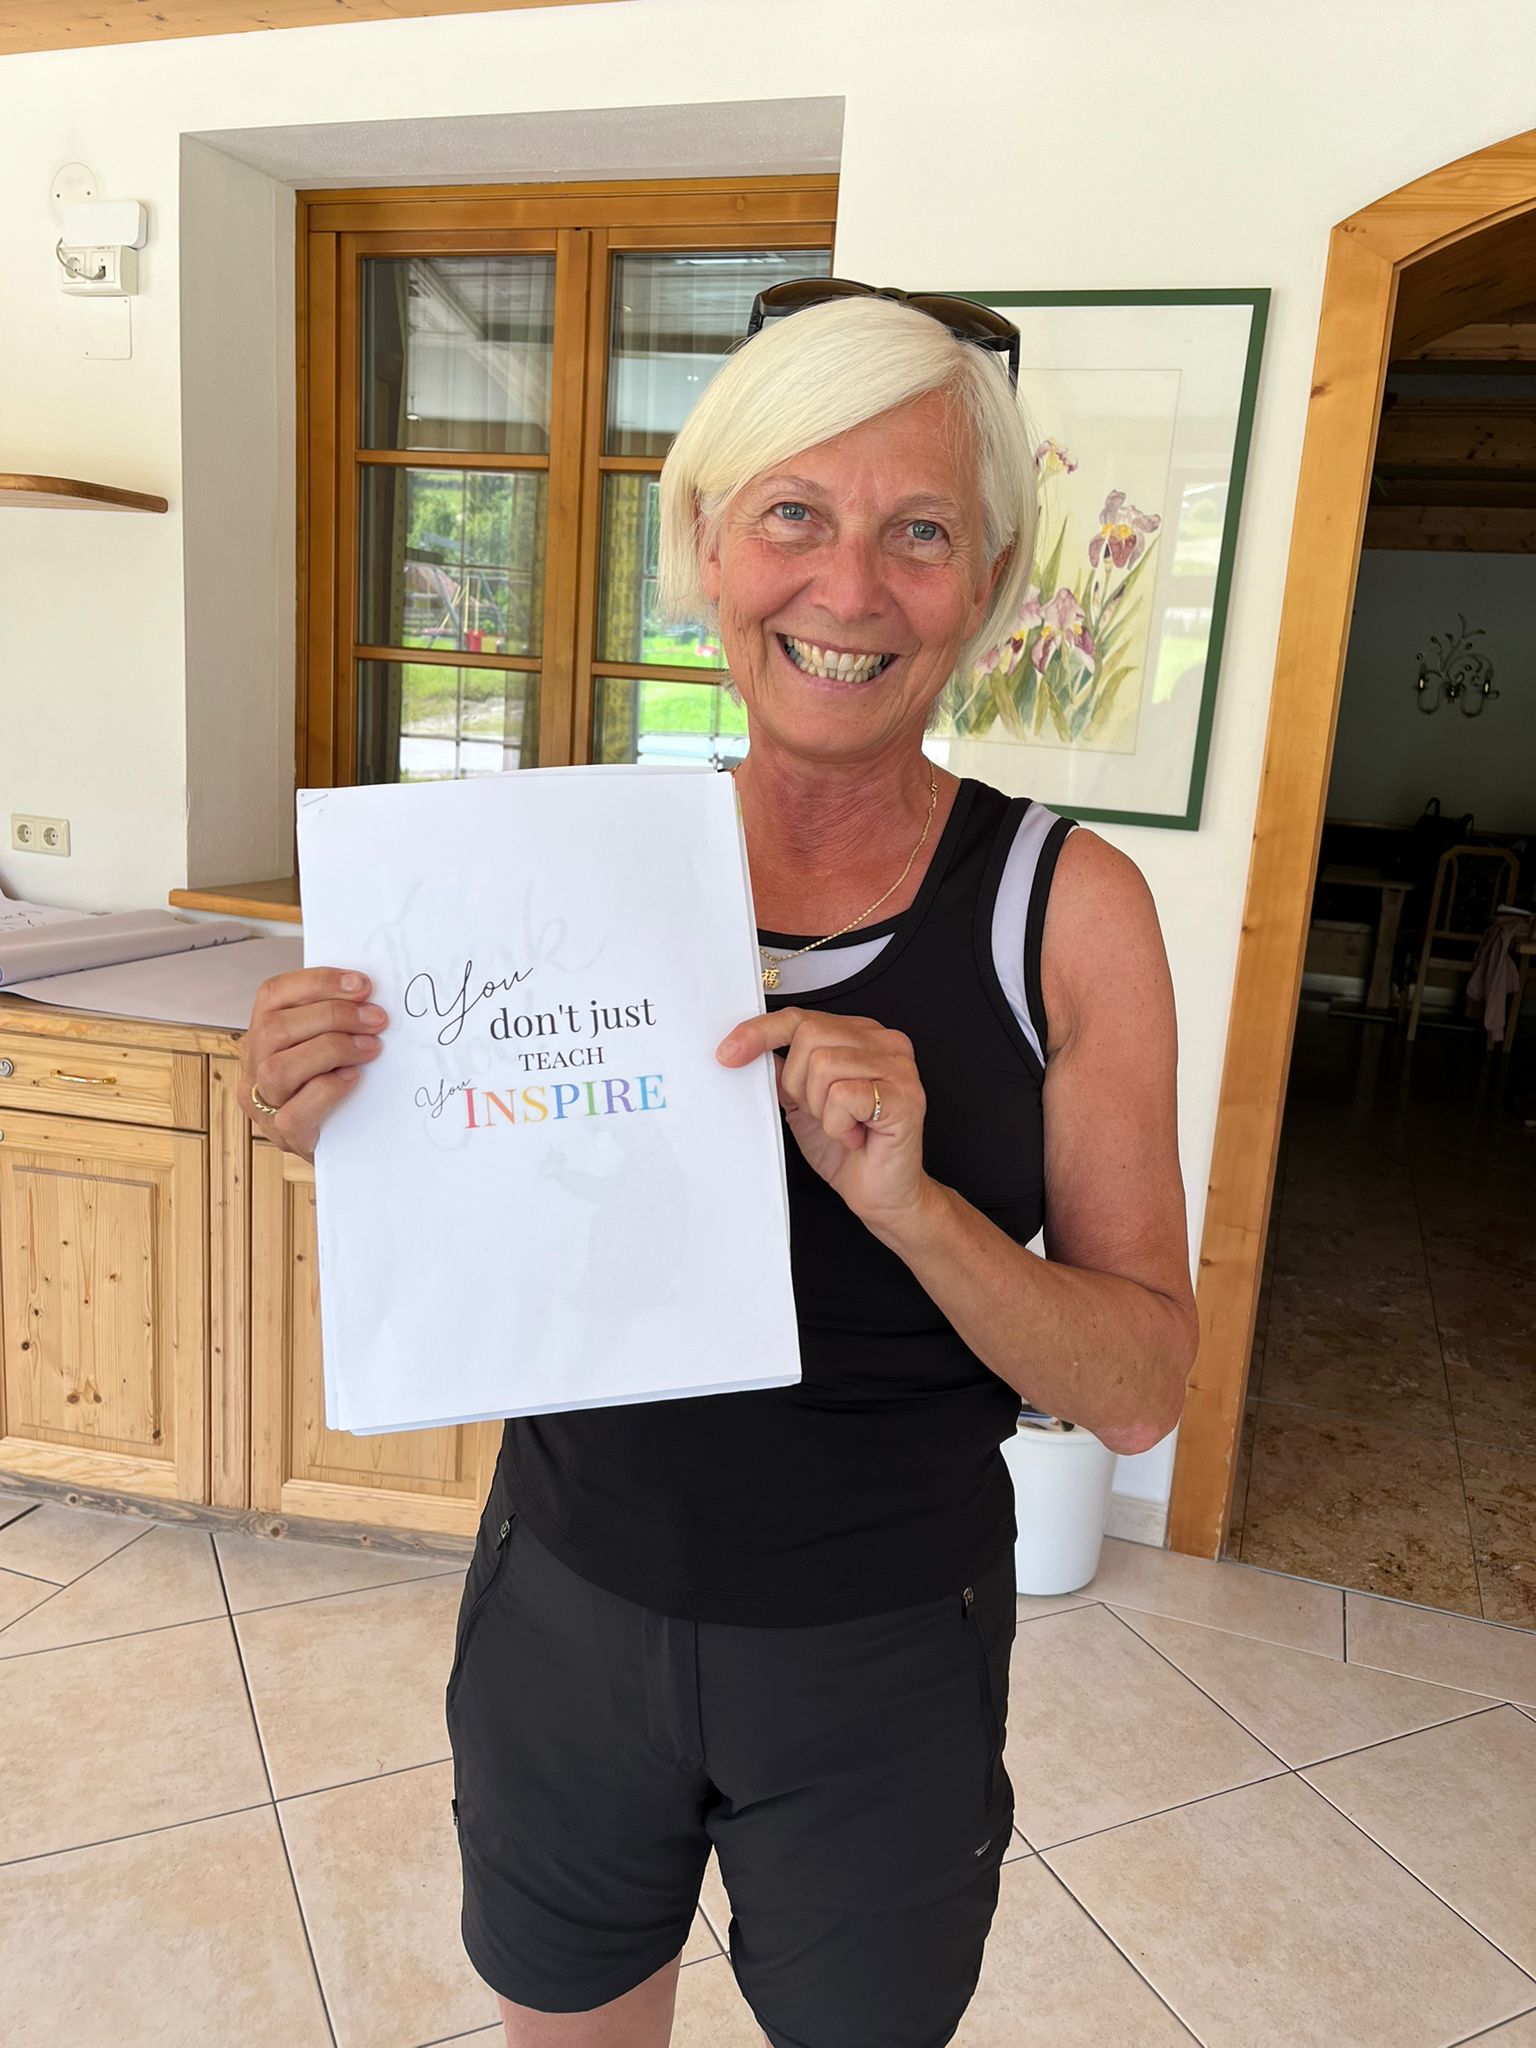 You
don't just
TEACH
You INSPIRE
Thank
福